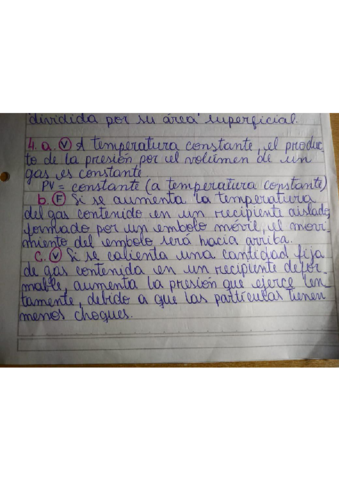 dividida por su área superficial.
4. a. (V) A temperatura constante, el produc-
to de la presión por el volumen de un
gas es constante
PV = constante (a temperatura constante)
b. (F) Si se aumenta la temperatura
del gas contenido en un recipiente aislado,
formado por un embolo móvil, el movi-
miento del embolo será hacia arriba.
c. (V) Si se calienta una cantidad fija
de gas contenida en un recipiente defor-
mable, aumenta la presión que ejerce len-
tamente, debido a que las partículas tienen
menos choques.